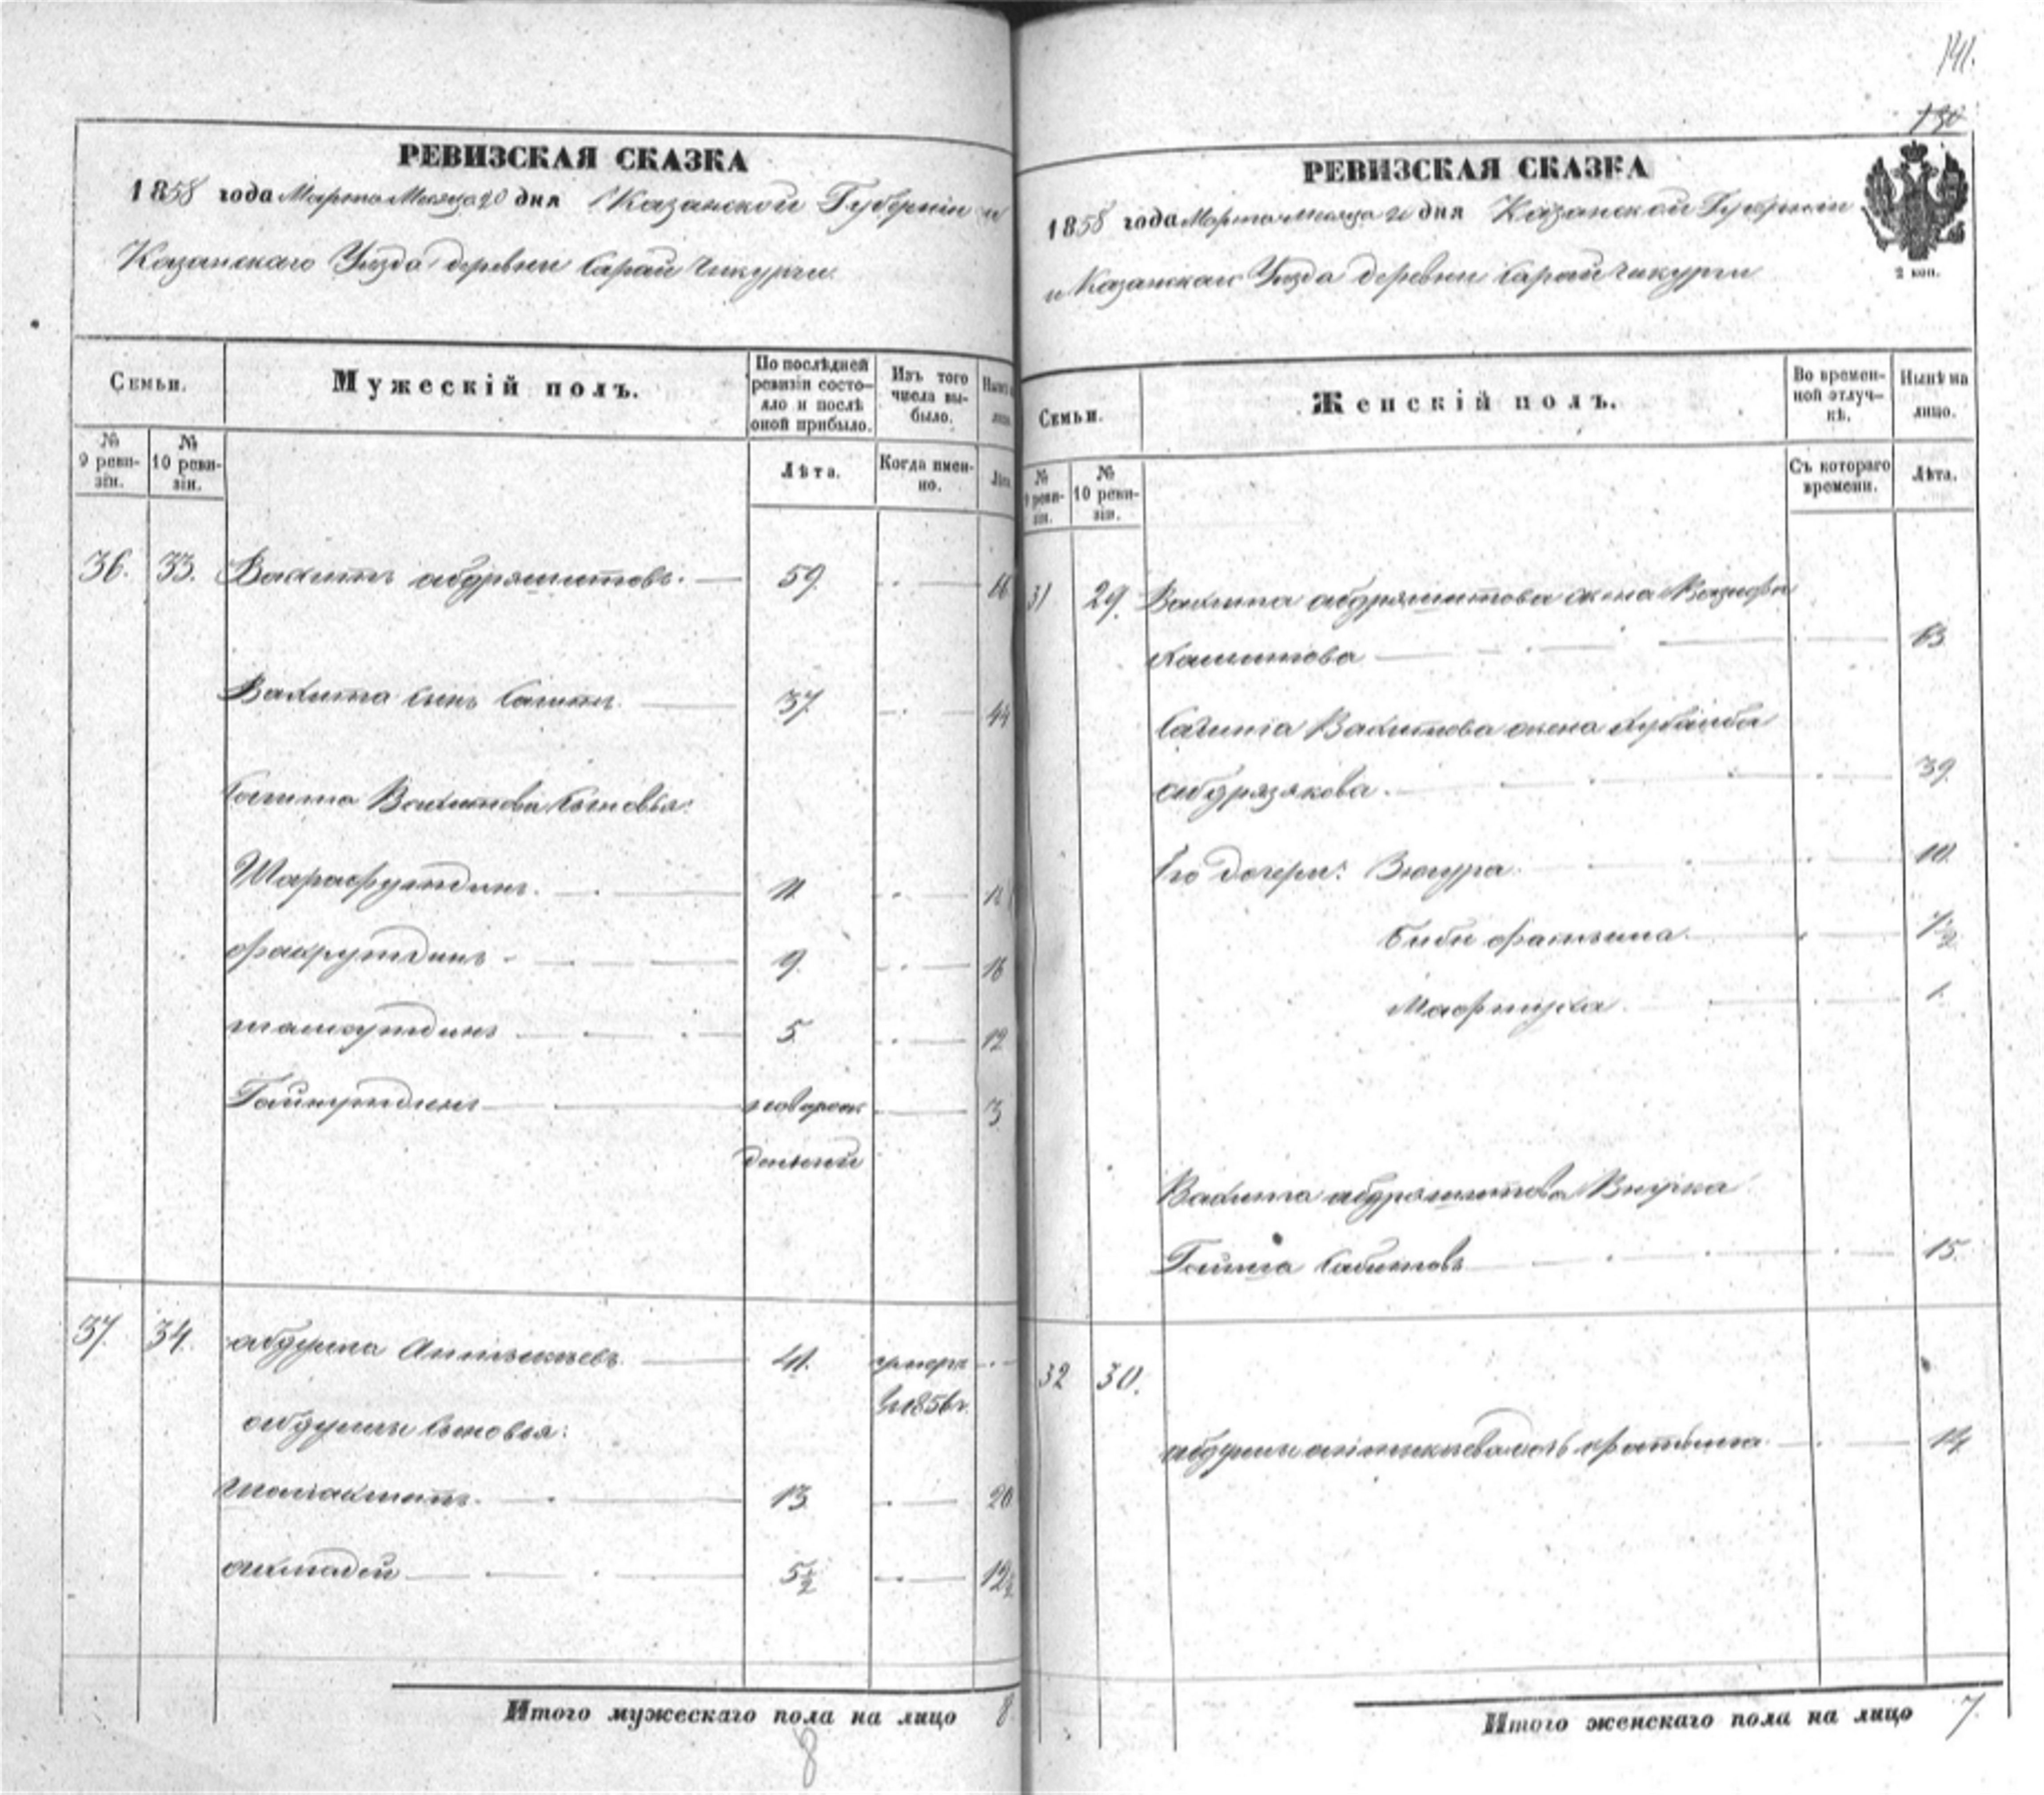 РЕВИЗСКАЯ СКАЗКА
1858 года Марта Месяца 20 дня Казанской Губернiи и
Казанскаго Уѣзда деревни Сарай Чикурчи
Семьи.
Мужескiй полъ.
По послѣдней ревизiи состо-
яло и послѣ
оной прибыло.
Изъ того
числа вы-
было.
№
9 реви-
зiи.
№
10 реви-
зiи.
Лѣта.
Когда имен-
но.
36. 33. Вахитъ абдряшитовъ. 59. 66
Вахита сынъ Сагитъ 37. 44
Сагита Вахитова сыновья:
Шарафутдинъ. 11. 18
Фахрутдинъ 9. 16
5. 12
Гайнутдинъ новорож 3
денный
37. 34. абдулла 41. умеръ
в 1856 г.
абдуллы сыновья:
13. 20
ахмадей 5½ 12½
Итого мужескаго пола на лицо 8.
8
141.
130
РЕВИЗСКАЯ СКАЗКА
1858 года Марта месяца 20 дня Казанской Губернiи
и Казанскаго Уѣзда деревни Сарай Чикурчи
2 коп.
Семьи.
Женскiй полъ.
Во времен-
ной отлуч-
кѣ.
Нынѣ на
лицо.
№
9 реви-
зiи.
№
10 реви-
зiи.
Съ котораго
времени.
Лѣта.
31 29. Вахита абдряшитова жена
63
Сагита Вахитова жена Хубайба
абдрязякова. 39.
Его дочери: Зюгура 10.
Биби фатыма. 7½
1.
Вахита абдряшитова Внучка
Сабитова 15.
32 30.
абдуллы дочь 14
Итого женскаго пола на лицо 7.